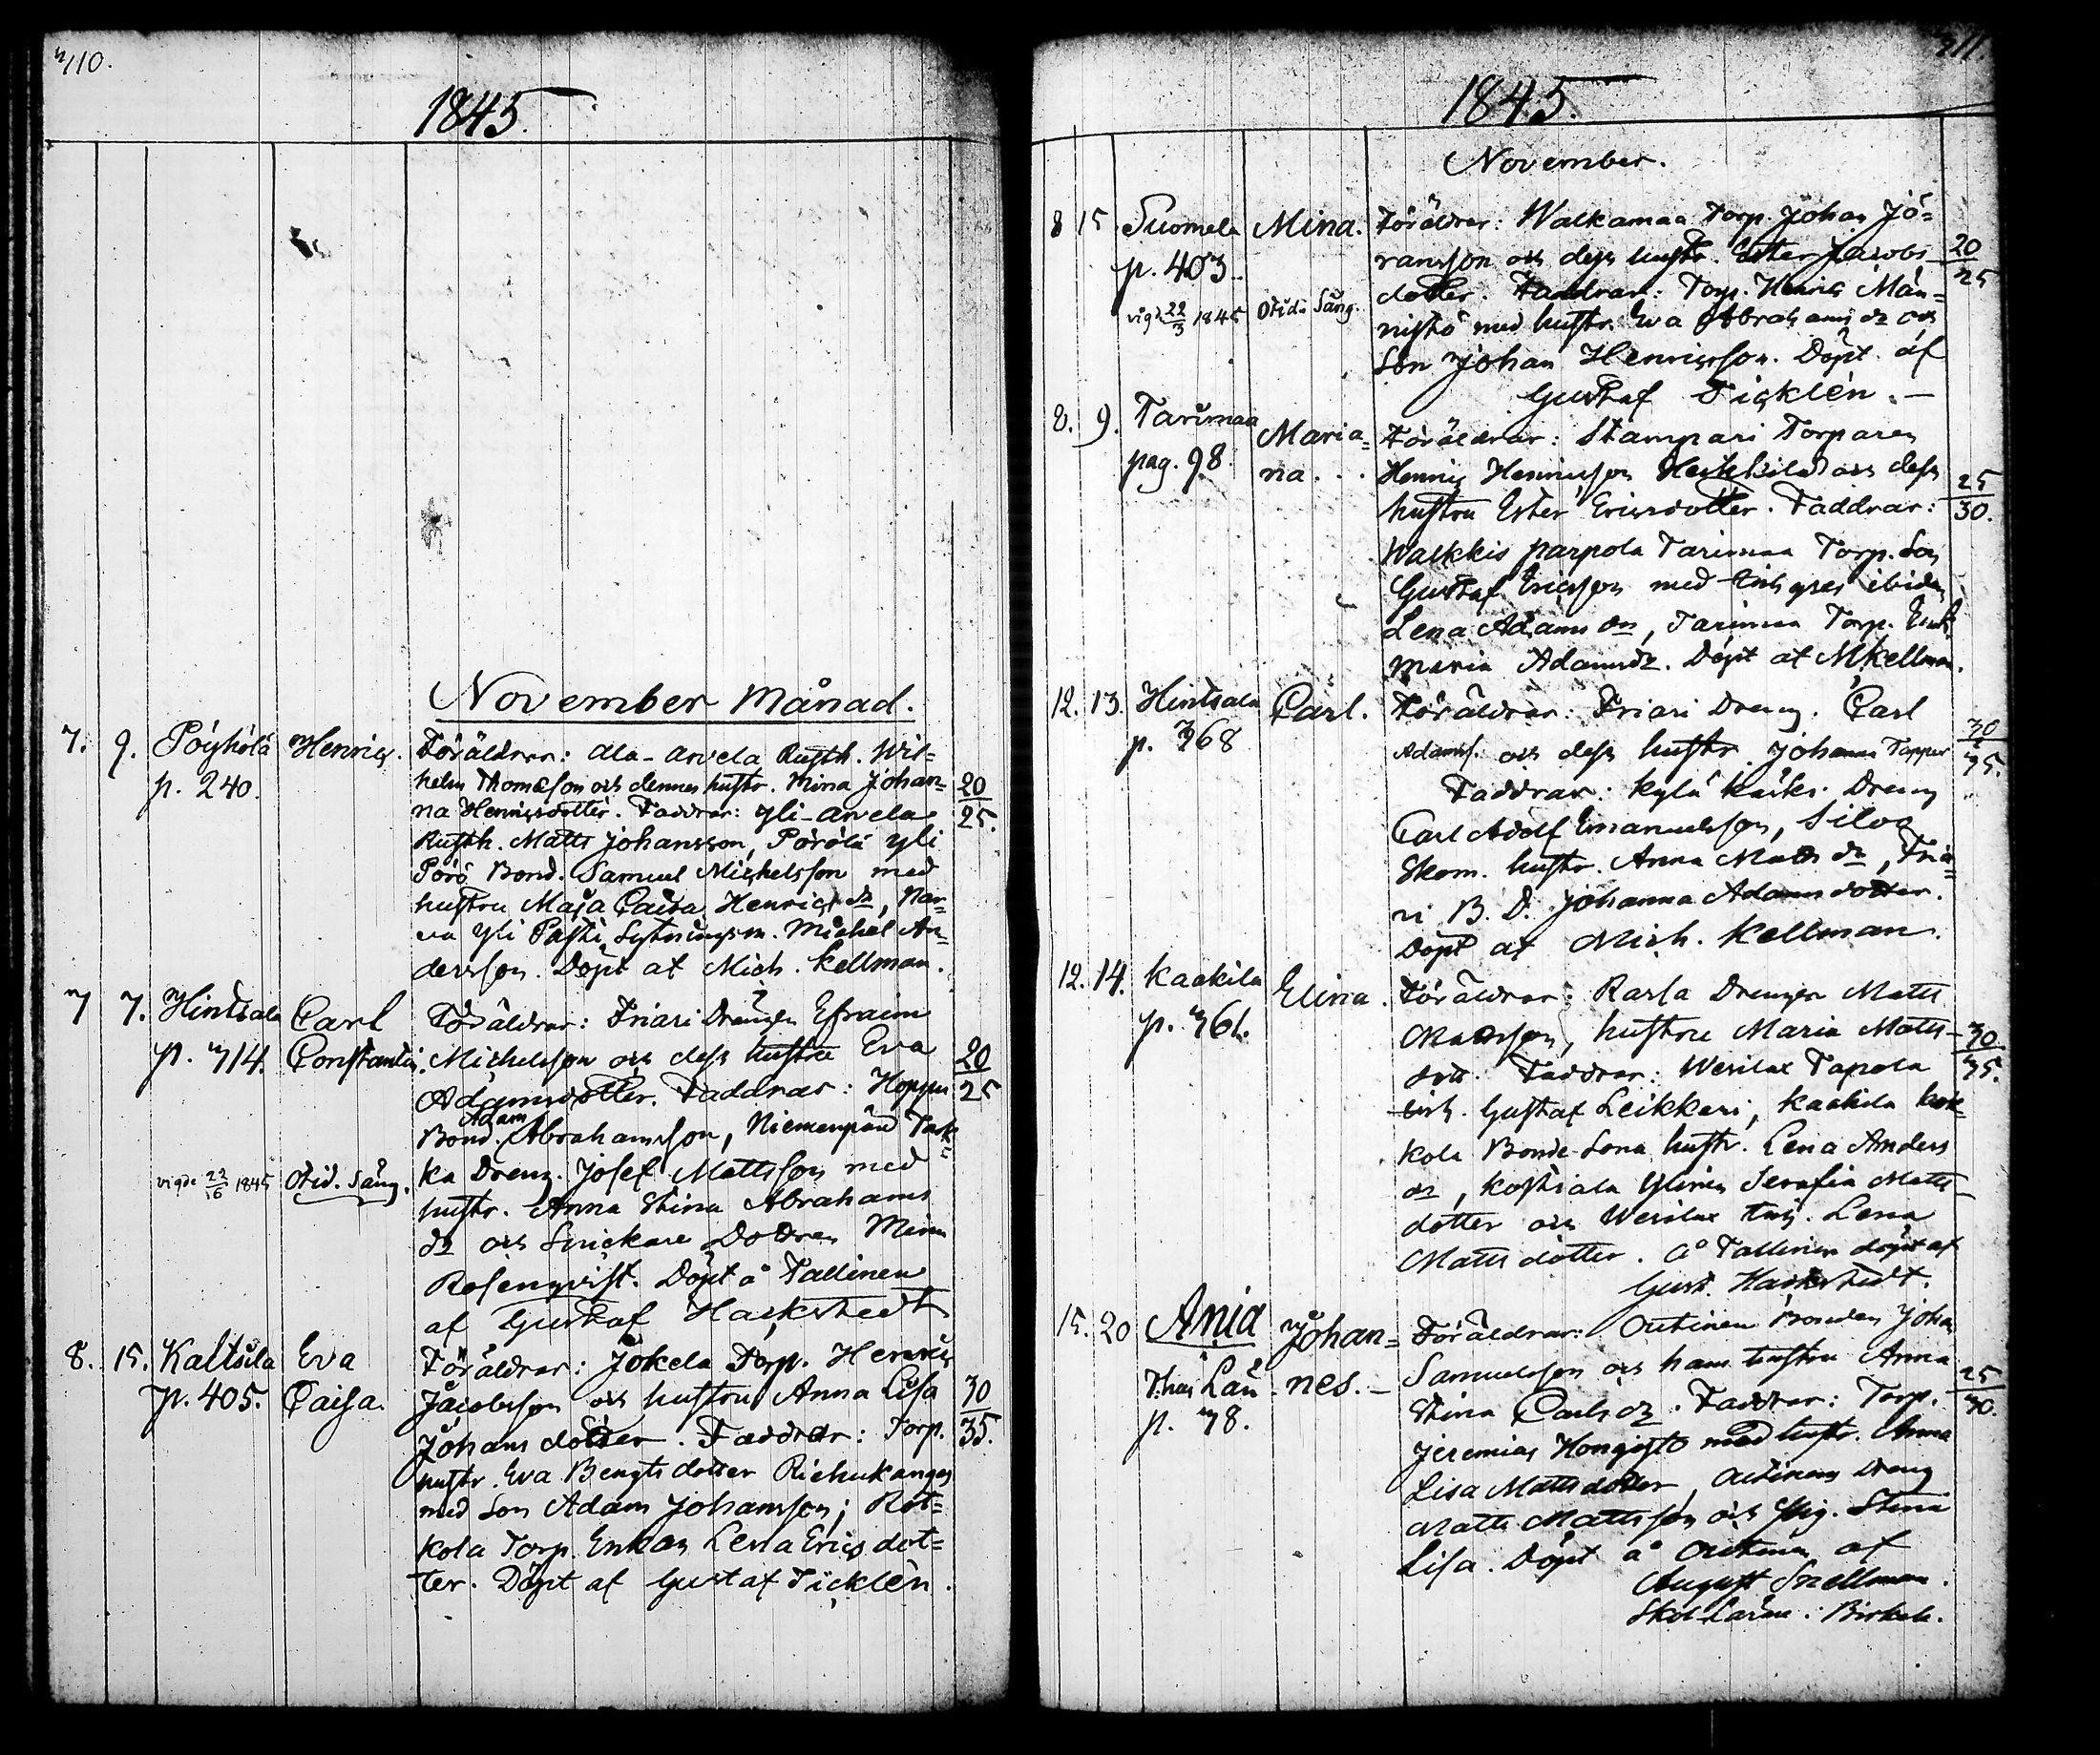 310.
1845.
November Månad.
7. 9. Pöyhölä Henric. Föräldrar: Ala-Arvela Rusth. Wil-
p. 240. helm Thomæson och dennes hustr. Mina Johan- 20
na Henricsdotter. Faddrar: Yli-Arvela 25.
Rusth. Matts Johansson, Pörölä Yli
Pörö Bond. Samuel Michelsson med
hustru Maja Caisa Henrics dr, Nar-
va Yli Pasti Sytningsm. Michel An-
dersson. Döpt af Mich. Kellman.
7 7. Hintsala Carl Föräldrar: Friari Drengen Efraim
p. 314. Constantin. Michelsson och dess hustru Eva 20
Adamsdotter. Faddrar: Hoppu 25
Adam
Bond. Abrahamsson, Niemenpää Park-
vigde 22/16 1845 Otid. säng. ka Dreng. Josef Mattsson med
hustr. Anna Stina Abrahams
dr och Snickare Dottren Mina
Rosenqvist. Döpt å Tallinen
af Gustaf Hackstedt
8. 15. Kaltsila Eva Föräldrar: Jokela Torp. Henric
p. 405. Caisa. Jacobsson och hustru Anna Lisa 30
Johans dotter. Faddrar: Torp. 35.
hustr. Eva Bengts dotter Riehunkangas
med Son Adam Johansson; Rot-
kola Torp. Enkan Lena Erics dot-
ter. Döpt af Gustaf Ticklén.
311.
1845.
November.
8 15 Suomela Mina. Föräldrar: Walkamaa Torp. Johan Jö-
p. 403. ransson och dess hustr. Ester Jacobs 20
dotter. Faddrar: Torp. Henric Män- 25
vigde 22/3 1845 Otidi Säng. nistö med hustr. Eva Abrahams dr och
Son Johan Henricsson. Döpt af
Gustaf Ticklén.
8. 9. Tarimaa Maria- Föräldrar: Stampari Torparen
pag. 98. na. Henric Henricsson Heikkilä och dess 25
hustru Ester Ericsdotter. Faddrar: 30.
Walkkis Parpola Tarimaa Torp. Son
Gustaf Ericsson med ibidem
Lena Adams dr, Tarimaa Torp. Enk.
Maria Adamsdr. Döpt af M Kellman.
12. 13. Hintsala Carl. Föräldrar: Friari Dreng. Carl
p. 368 Adamss. och dess hustr. Johanna Tappur 30
35.
Faddrar: Kylä Käki Dreng
Carl Adolf Emanuelsson, Silvo
Skom. hustr. Anna Matts dr, Fria-
ri B. D. Johanna Adams dotter.
Döpt af Mich. Kellman.
12. 14. Kaakila Elina. Föräldrar: Rasla Drengen Matts
p. 361. Mattsson, hustru Maria Matts- 30
dott. Faddrar: Werilax Tapola 35.
Gustaf Leikkari, Kaakila Kok-
kola Bonde Sons hustr. Lena Anders
dr, Kostiala Ylinen Serafia Matts-
dotter och Werilax Lena
Matts dotter. å Tallinen döpt af
Gust. Hackstedt.
15. 20 Ania Johan- Föräldrar: Outinen Bonden Johan
Samuelsson och hans hustru Anna
Thas Län nes. Stina Carls dr. Faddrar: Torp. 25
p. 38. 30.
Jeremias Hongisto med hustr. Anna
Lisa Mattsdotter, Outinen Dreng
Matts Mattsson och Pig. Stina
Lisa. Döpt å Outinen af
August Snellman.
Skol Lärar. i Birkala.